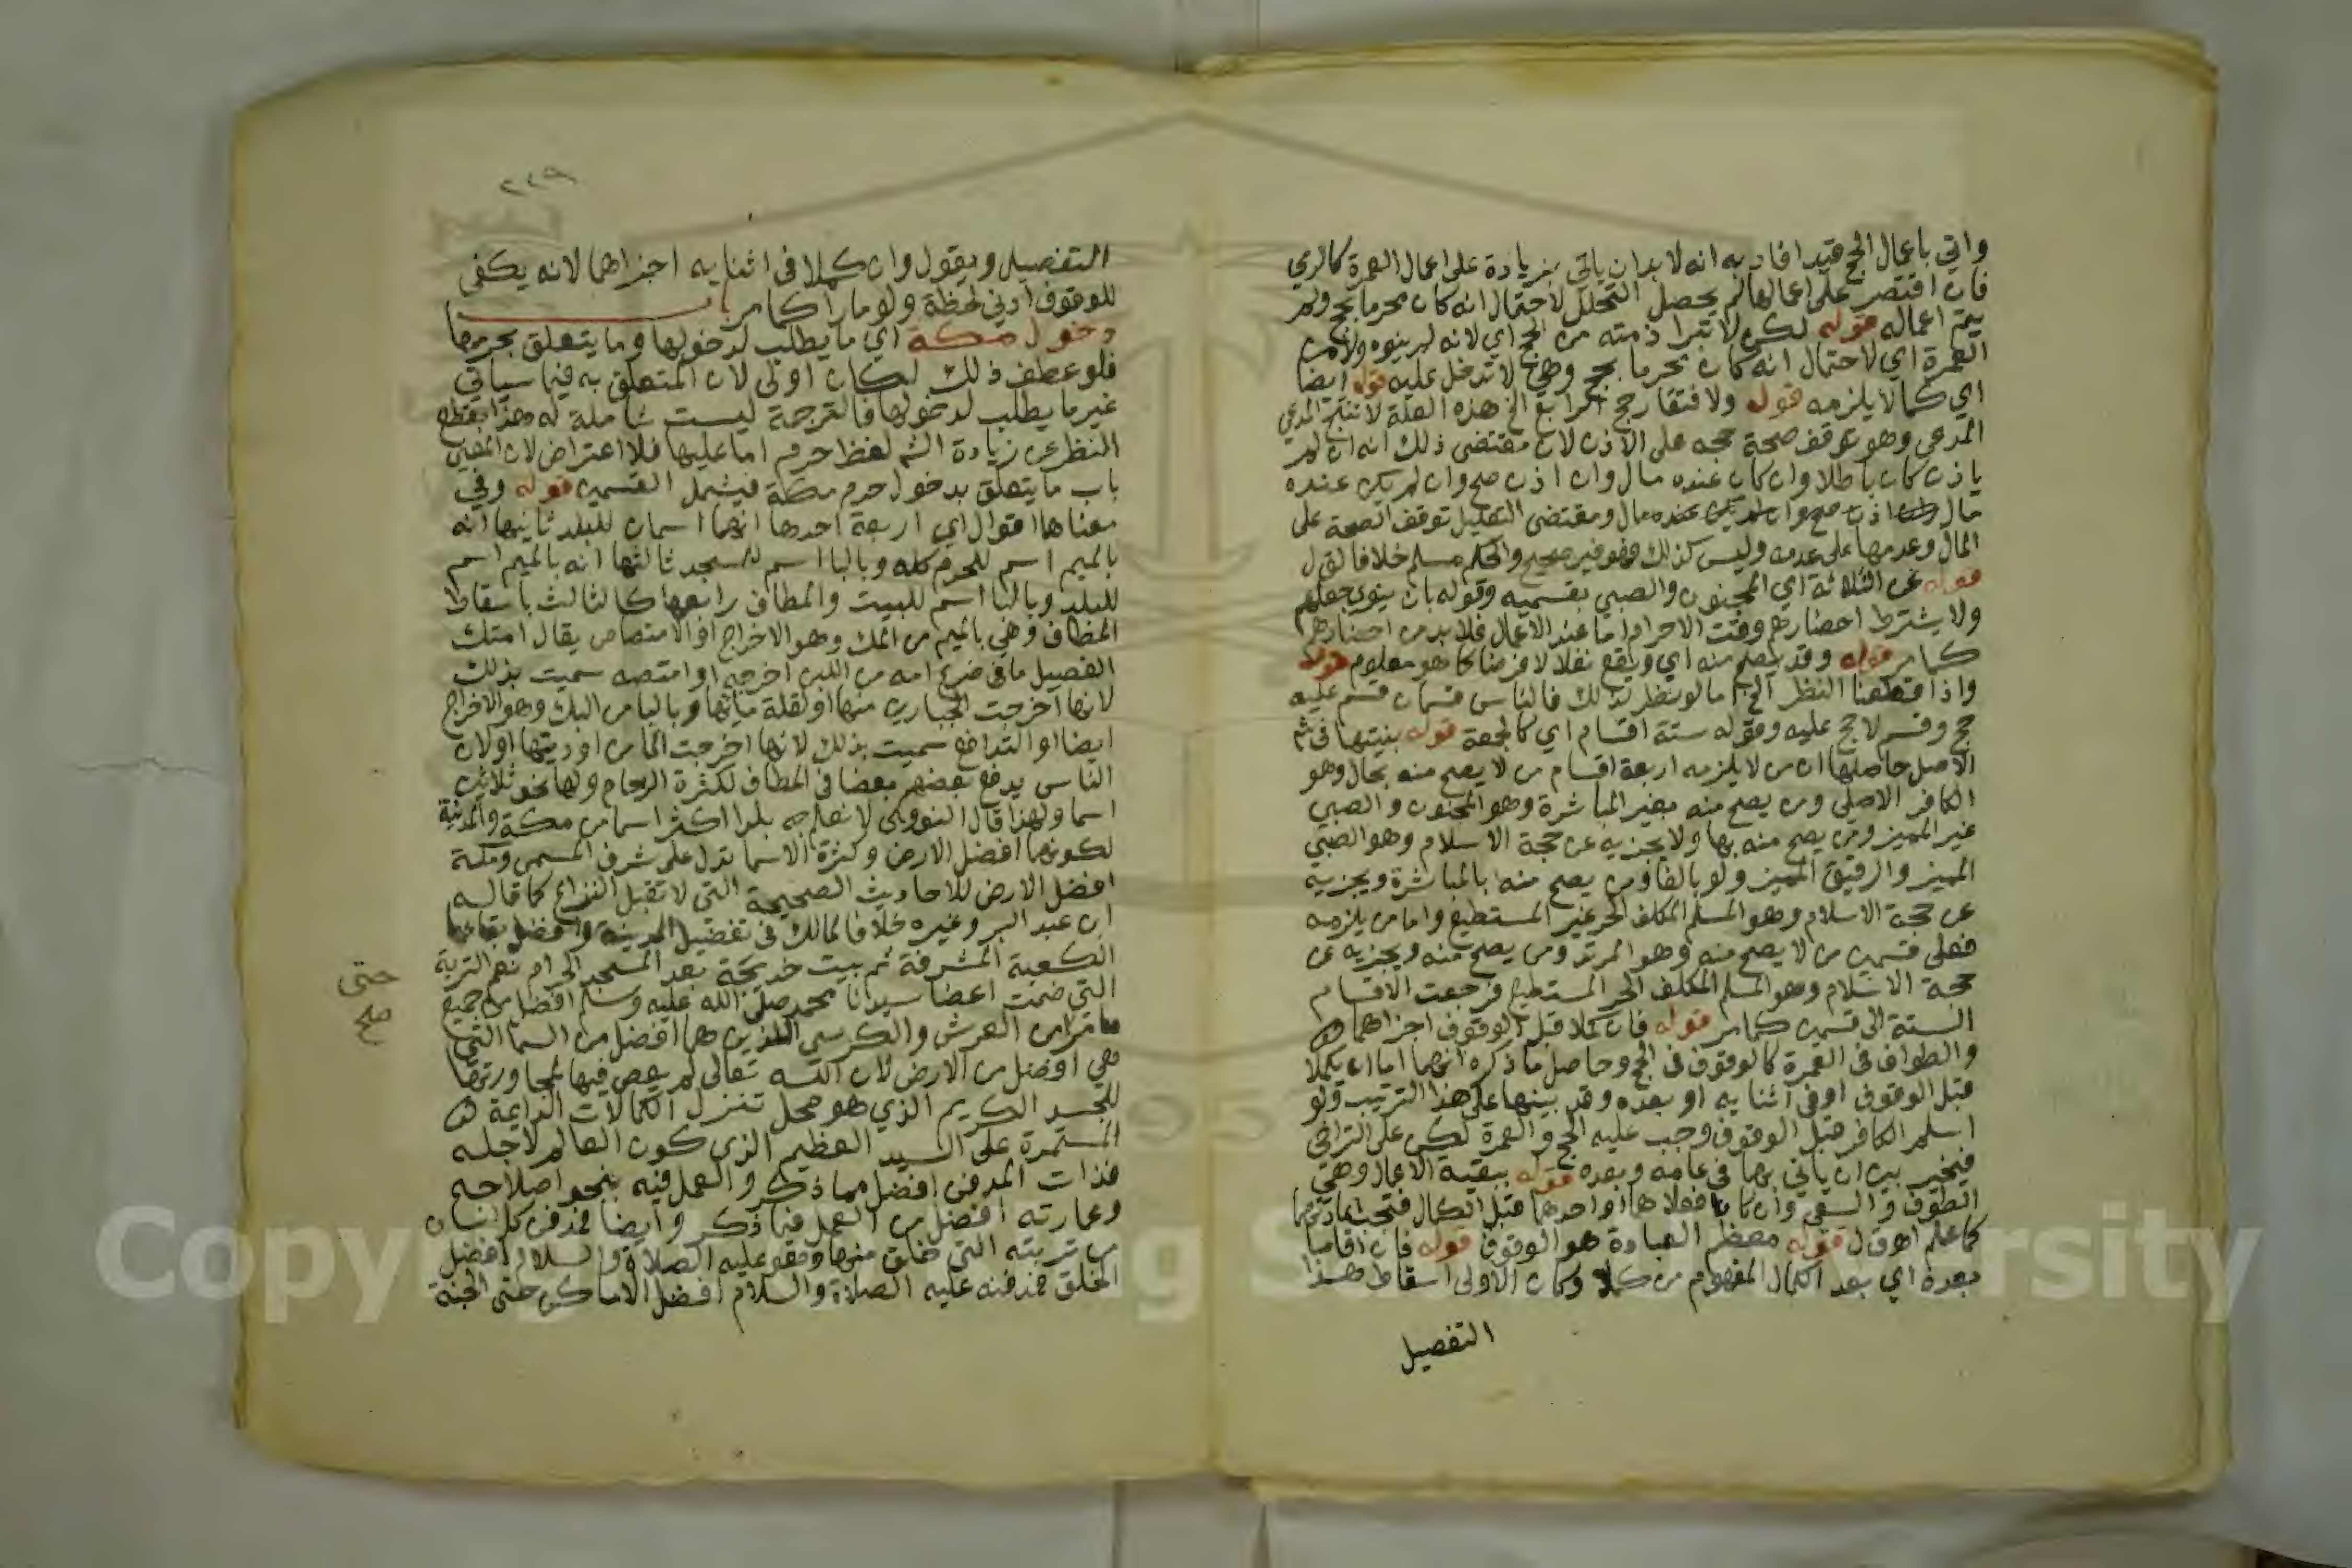 واتي باعمال الحج قيد افاد به انه لا بد ان ياتي بزيادة على اعمال العمرة كالرمي
فان اقتصر على اعمالها لم يحصل التحلل لاحتمال انه كان محرما بحج ولم
يتم اعماله قوله لكن لا تبرا ذمته من الحج اي لانه لم ينوه ولا من
العمرة اي لاحتمال انه كان محرما بحج وهي لا تدخل عليه قوله ايضا
اي كما لا يلزمه قوله ولا فتقار حج الرابع الخ هذه العلة لا تنتج المدعي
المدعي وهو توقف صحة حجه على الاذن لان مقتضى ذلك انه ان لم
ياذن كان باطلا وان كان عنده مال وان اذن صح وان لم يكن عنده
مال ومقتضى التعليل توقف الصحة على
المال وعدمها على عدمه وليس كذلك فهو غير صحيح والحكم مسلم خلافا لق ل
قوله عن الثلاثة اي المجنون والصبي بقسميه وقوله بان ينوي جعلهم
ولا يشترط احضارهم وقت الاحرام اما عند الاعمال فلا بد من احضارهم
كما مر قوله وقد يصح منه اي ويقع نفلا لا فرضا كما هو معلوم قوله
واذا قطعنا النظر الخ اما لو نظر لذلك فالناس قسمان قسم عليه
حج وقسم لا حج عليه وقوله ستة اقسام اي كالجمعة قوله بنيتها في شم
الاصل حاصلها ان من لا يلزمه اربعة اقسام من لا يصح منه بحال وهو
الكافر الاصلي ومن يصح منه بغير المباشرة وهو المجنون والصبي
غير المميز ومن يصح منه بها ولا يجزيه عن حجة الاسلام وهو الصبي
المميز والرقيق المميز ولو بالغا ومن يصح منه بالمباشرة ويجزيه
عن حجة الاسلام وهو المسلم المكلف الحر غير المستطيع واما من يلزمه
فعلى قسمين من لا يصح منه وهو المرتد ومن يصح منه ويجزيه عن
حجة الاسلام وهو المسلم المكلف الحر المستطيع فرجعت الاقسام
الستة الى قسمين كما مر قوله فان كملا قبل الوقوف اجزاهما
والطواف في العمرة كالوقوف في الحج وحاصل ما ذكره انهما اما ان يكملا
قبل الوقوف او في اثنايه او بعده وقد بينها على هذا الترتيب ولو
اسلم الكافر قبل الوقوف وجب عليه الحج والعمرة لكن على التراخي
فيخير بين ان ياتي بهما في عامه وبعده قوله ببقية الاعمال وهي
الطوف والسعي وان كانا فعلاهما او احدهما قبل الكمال فتجب اعادتهما
كما علم اهـ ق ل قوله معظم العبادة هو الوقوف قوله فان اقاما
بعده اي بعد الكمال المفهوم من كملا وكان الاولى اسقاط هذا
التفصيل
٢٤٩
التفصيل ويقول وان كملا في اثنايه اجزاهما لانه يكفي
للوقوف ادنى لحظة ولو مارا كما مر باب
دخول مكة اي ما يطلب لدخولها وما يتعلق بحرمها
فلو عطف ذلك لكان اولى لان المتعلق به فيما سياتي
غير ما يطلب لدخولها فالترجمة ليست شاملة له وهذا بقطع
النظر عن زيادة الشم لفظ حرم اما عليها فلا اعتراض لان المعنى
باب ما يتعلق بدخول حرم مكة فيشمل القسمين قوله وفي
معناها اقوال اي اربعة احدها انهما اسمان للبلد ثانيها انه
بالميم اسم للحرم كله وبالبا اسم للمسجد ثالثها انه بالميم اسم
للبلد وبالبا اسم للبيت والمطاف رابعها كالثالث باسقاط
المطاف وهي بالميم من المك وهو الاخراج او الامتصاص يقال امتك
الفصيل ما في ضرع امه من اللبن اخرجه او امتصه سميت بذلك
لانها اخرجت الجبارين منها او لقلة مائها وبالبا من البك وهو الاخراج
ايضا او التدافع سميت بذلك لانها اخرجت الما من اوديتها او لان
الناس يدفع بعضهم بعضا في المطاف لكثرة الزحام ولها نحو ثلاثين
اسما ولهذا قال النووي لا نعلم بلدا اكثر اسما من مكة والمدينة
لكونهما افضل الارض وكثرة الاسما تدل على شرف المسمى ومكة
افضل الارض للاحاديث الصحيحة التي لا تقبل النزاع كما قاله
ابن عبد البر وغيره خلافا لمالك في تفضيل المدينة وافضل بقاعها
الكعبة المشرفة ثم بيت خديجة بعد المسجد الحرام نعم التربة
التي ضمت اعضا سيدنا محمد صلى الله عليه وسلم افضل من جميع
ما مر من العرش والكرسي اللذين هما افضل من السما التي
هي افضل من الارض لان الله تعالى لم يعص فيها لمجاورتها
للجسد الكريم الذي هو محل تنزل الكمالات الدايمة
المستمرة على السيد العظيم الذي كون العالم لاجله
فذات المدفن افضل مما ذكر والعمل فيه بنحو اصلاحه
وعمارته افضل من العمل فيما ذكر وايضا فمدفن كل انسان
من تربته التي خلق منها وهو عليه الصلاة والسلام افضل
الخلق فمدفنه عليه الصلاة والسلام افضل الاماكن حتى الجنة
حتى
صح
Copyright © King Saud University